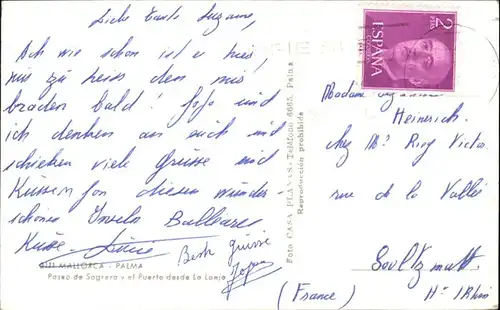 Liebe Tante Suzanne,
Ach wie schön ist es hier,
nur zu heiss den mir
braden bald! Jojo und
ich denken an euch und
schicken viele Grüsse und
Küssen fon diesen wunder-
schönen Inseln Balleares
Küsse
Beste grüsse
MALLORCA - PALMA
Paseo de Sagrera y el Puerto desde La Lonja
Foto CASA PLANAS - Teléfono 6665. Palma
Reproducción prohibida
2
PTAS
ESPAÑA
CORREOS
Madame Suzanne
Heinerich.
chez Mr Ring Victor
rue de la Vallée
Soultzmatt.
(France) Ht Rhin